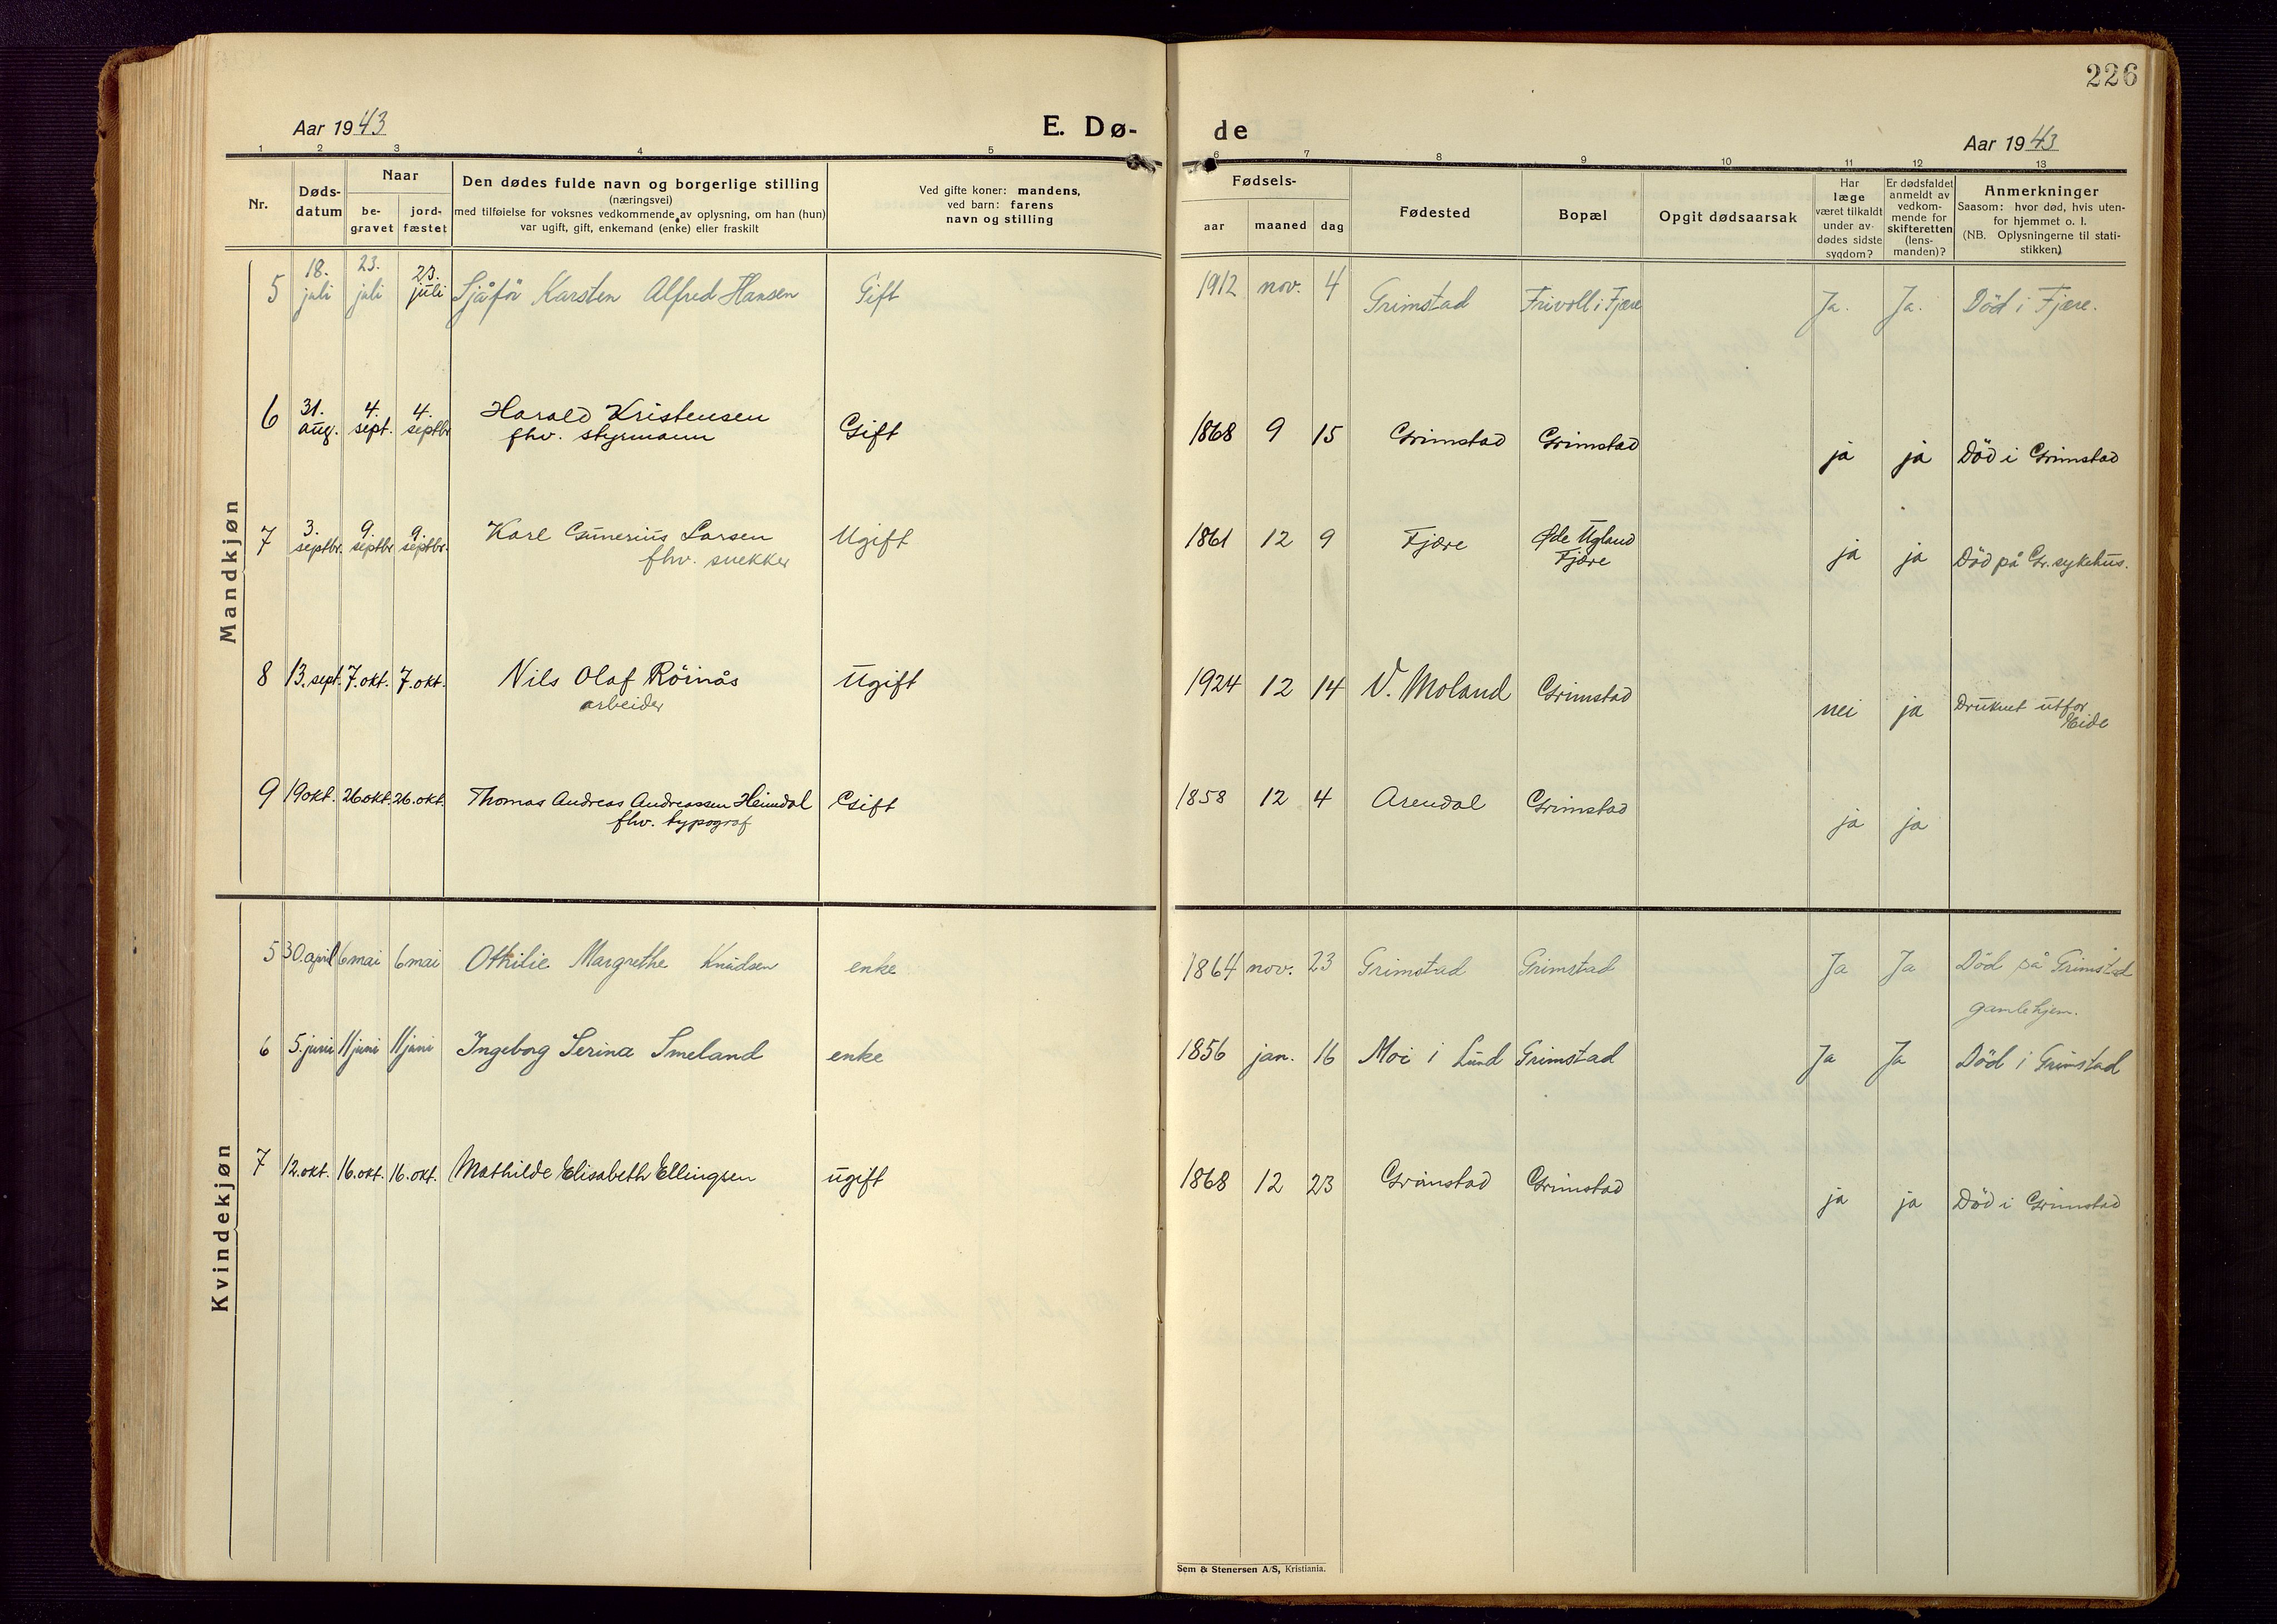 226
Aar 1943
E. Dø-
de
Aar 1943
1 2 3 4 5
6 7 8 9 10 11 12 13
Nr.
Døds-
datum
Naar
be-
gravet
jord-
fæstet
Den dødes fulde navn og borgerlige stilling
(næringsvei)
med tilføielse for voksnes vedkommende av oplysning, om han (hun)
var ugift, gift, enkemand (enke) eller fraskilt
Ved gifte koner: mandens,
ved barn: farens
navn og stilling
Fødsels-
aar maaned dag
Fødested
Bopæl
Opgit dødsaarsak
Har
læge
været tilkaldt
under av-
dødes sidste
sygdom?
Er dødsfaldet
anmeldt av
vedkom-
mende for
skifteretten
(lens-
manden)?
Anmerkninger
Saasom: hvor død, hvis uten-
for hjemmet o. l.
(NB. Oplysningerne til stati-
stikken)
Mandkjøn
5 18. juli 23. juli 23. juli Sjåför Karsten Alfred Hansen Gift 1912 nov. 4 Grimstad Frivoll i Fjære Ja. Ja. Död i Fjære.
6 31. aug. 4. sept. 4. septbr Harald Kristensen Gift 1868 9 15 Grimstad Grimstad ja ja Död i Grimstad
fhv. styrmann
7 3. septbr. 9. septbr 9. septbr. Karl Gunerius Larsen Ugift 1861 12 9 Fjære Øde Ugland ja ja Död på Gr. sykehus.
fhv. snekker Fjære
8 13. sept. 7. okt. 7. okt. Nils Olaf Röinås Ugift 1924 12 14 V. Moland Grimstad nei ja Druknet utfor
arbeider Heide
9 19 okt. 26 okt. 26. okt. Thomas Andreas Andreassen Heimdal Gift 1858 12 4 Arendal Grimstad ja ja
fhv. typograf
Kvindekjøn
5 30. april 6 mai 6 mai Othilie Margrethe Knudsen enke 1864 nov. 23 Grimstad Grimstad Ja Ja Död på Grimstad
gamlehjem.
6 5. juni 11 juni 11 juni Ingeborg Serina Smeland enke 1856 jan. 16 Moi i Lund Grimstad Ja Ja Död i Grimstad
7 12. okt. 16. okt. 16. okt. Mathilde Elisabeth Ellingsen ugift 1868 12 23 Grimstad Grimstad ja ja Död i Grimstad
Sem & Stenersen A/S, Kristiania.